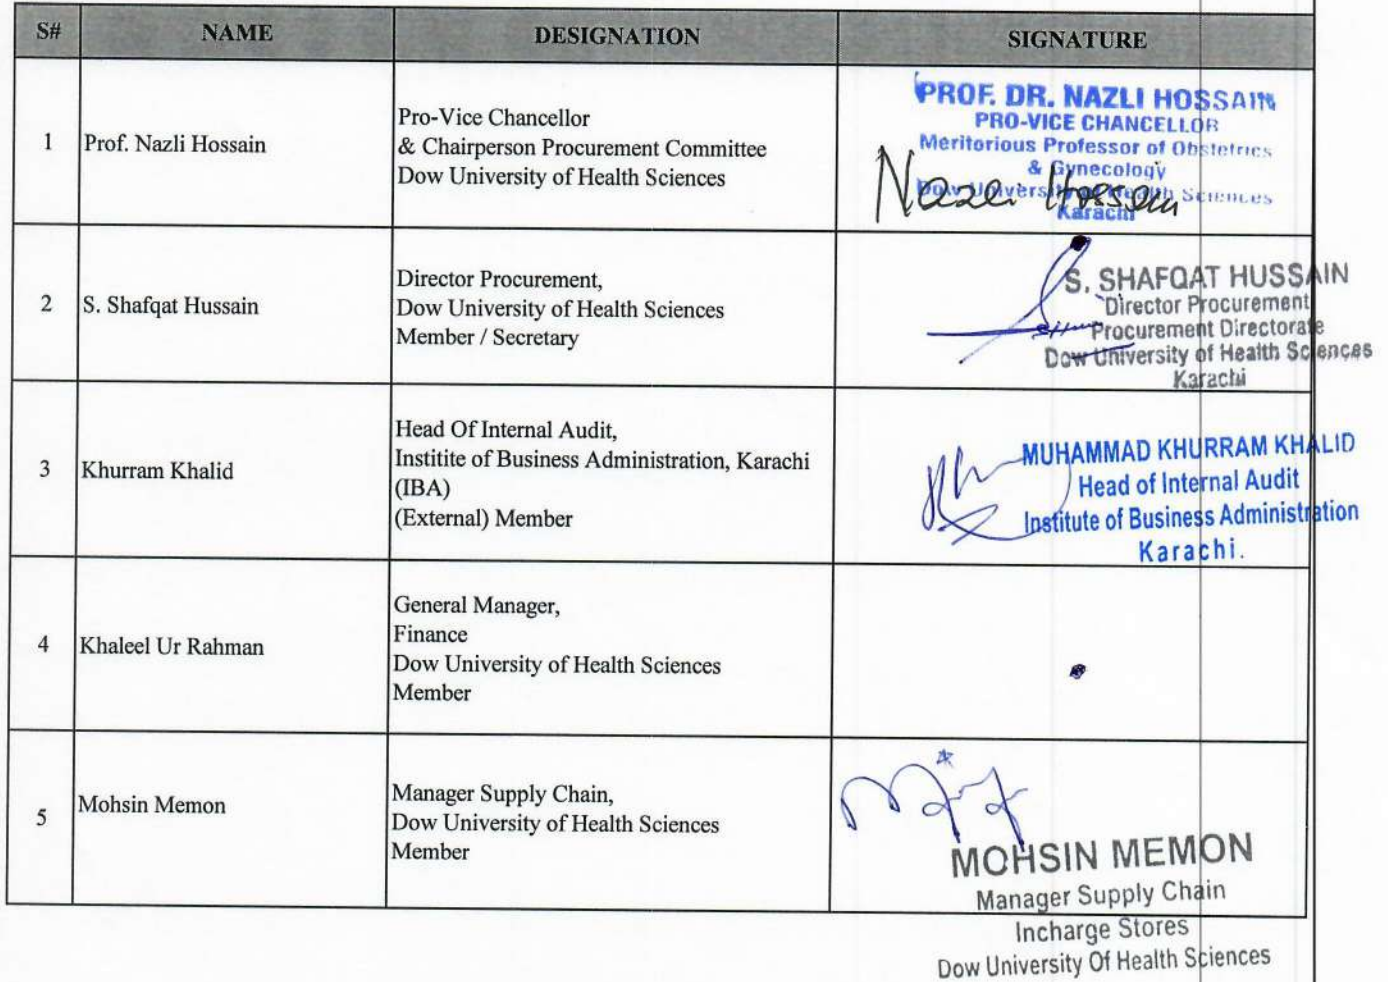 S# NAME DESIGNATION SIGNATURE
1 Prof. Nazli Hossain
Pro-Vice Chancellor
& Chairperson Procurement Committee
Dow University of Health Sciences
PROF. DR. NAZLI HOSSAIN
PRO-VICE CHANCELLOR
Meritorious Professor of Obstetrics
& Gynecology
Dow University of Health Sciences
Karachi
Nazli Hossain
2 S. Shafqat Hussain
Director Procurement,
Dow University of Health Sciences
Member / Secretary
S. SHAFQAT HUSSAIN
Director Procurement
Procurement Directorate
Dow University of Health Sciences
Karachi
3 Khurram Khalid
Head Of Internal Audit,
Institite of Business Administration, Karachi
(IBA)
(External) Member
MUHAMMAD KHURRAM KHALID
Head of Internal Audit
Institute of Business Administration
Karachi.
4 Khaleel Ur Rahman
General Manager,
Finance
Dow University of Health Sciences
Member
5 Mohsin Memon
Manager Supply Chain,
Dow University of Health Sciences
Member
MOHSIN MEMON
Manager Supply Chain
Incharge Stores
Dow University Of Health Sciences